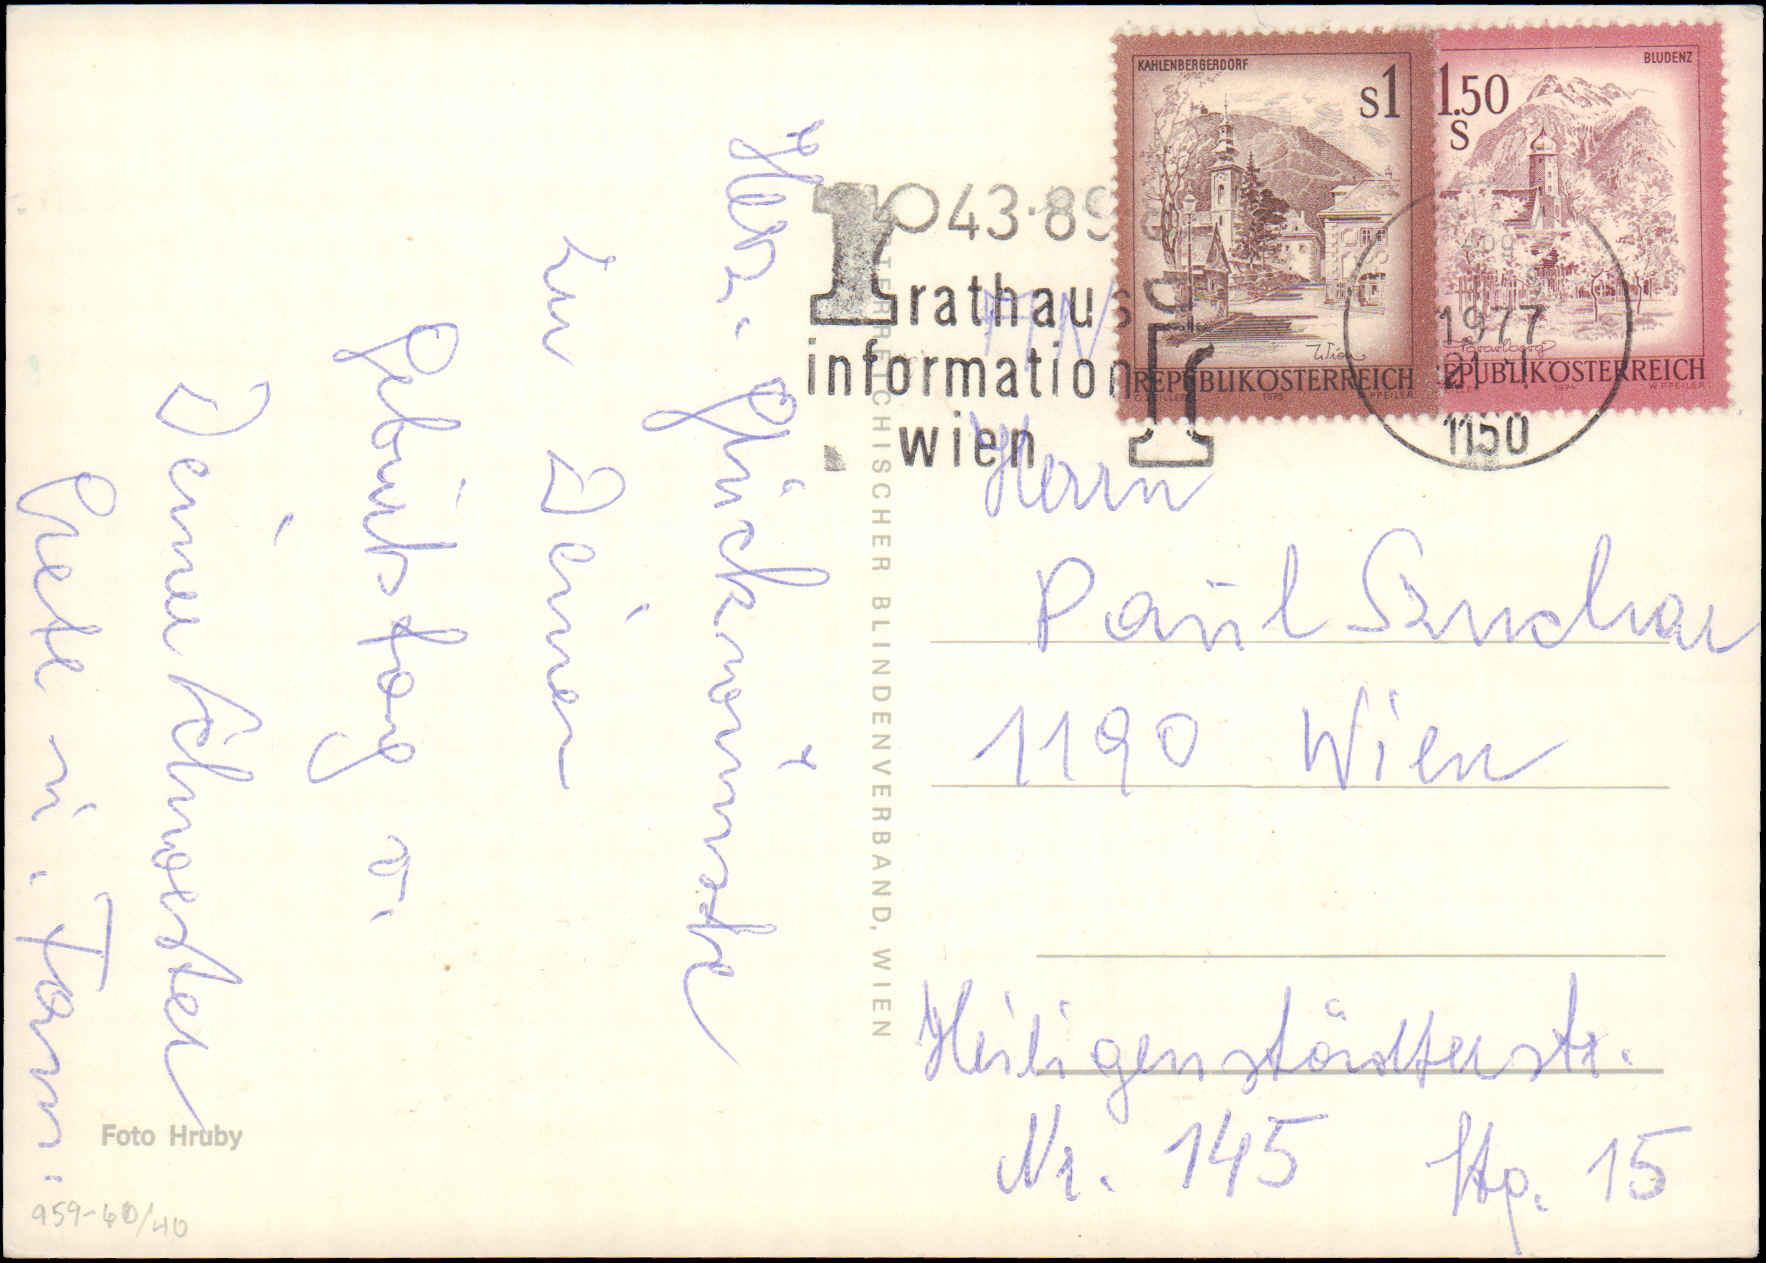 Herz. Glückwünsche
zu Deinen
Geburtstag v.
Deiner Schwester
Grete u. Fam.
Foto Hruby
959-60/40
ÖSTERREICHISCHER BLINDENVERBAND, WIEN
43·89
rathaus
information
wien
KAHLENBERGERDORF
S1
Wien
REPUBLIK ÖSTERREICH
BLUDENZ
1.50
S
Vorarlberg
REPUBLIK ÖSTERREICH
1977
1150
Herrn
Paul
1190 Wien
Heiligenstädterstr.
Nr. 145 Stg. 15